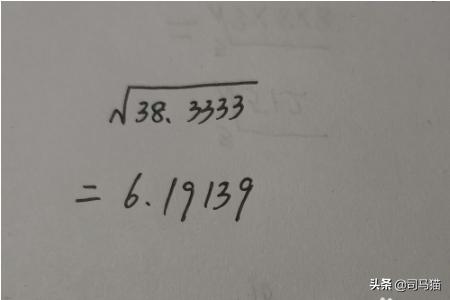 √38.3333
= 6.19139
头条 @司马猫